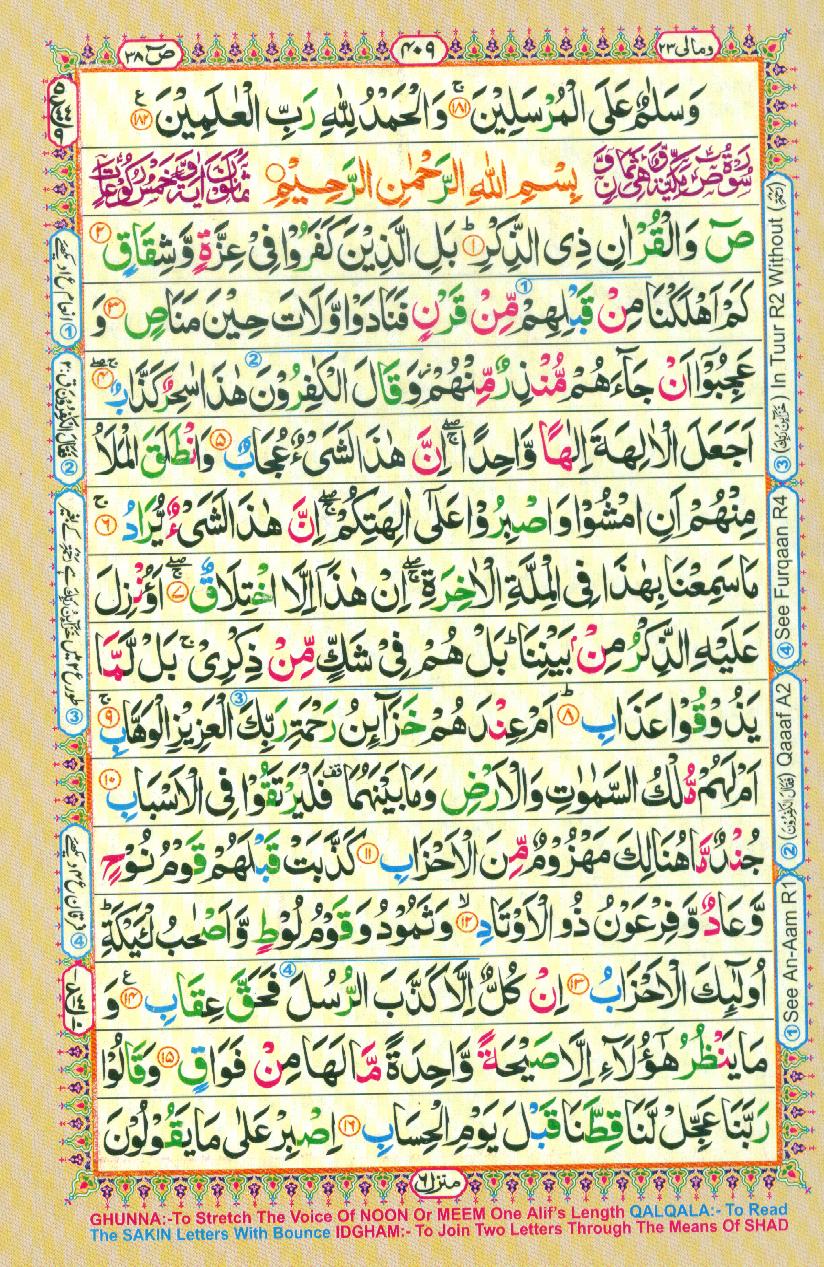 صٓ ٣٨
٤٠٩
ومالی ٢٣
وَسَلٰمٌ عَلَى الْمُرْسَلِيْنَ ۚ﴿١٨١﴾ وَالْحَمْدُ لِلّٰهِ رَبِّ الْعٰلَمِيْنَ ﴿١٨٢﴾
سُوْرَةُ صٓ مَكِّيَّةٌ وَّهِيَ ثَمَانٌ وَّ
بِسْمِ اللّٰهِ الرَّحْمٰنِ الرَّحِيْمِ
ثَمَانُوْنَ اٰيَةً وَّخَمْسُ رُكُوْعَاتٍ
صٓ وَالْقُرْاٰنِ ذِى الذِّكْرِ ؕ﴿١﴾ بَلِ الَّذِيْنَ كَفَرُوْا فِىْ عِزَّةٍ وَّشِقَاقٍ ﴿٢﴾
كَمْ اَهْلَكْنَا مِنْ قَبْلِهِمْ مِّنْ قَرْنٍ فَنَادَوْا وَّلَاتَ حِيْنَ مَنَاصٍ ﴿٣﴾ وَ
عَجِبُوْۤا اَنْ جَآءَهُمْ مُّنْذِرٌ مِّنْهُمْ وَقَالَ الْكٰفِرُوْنَ هٰذَا سٰحِرٌ كَذَّابٌ ﴿٤﴾
اَجَعَلَ الْاٰلِهَةَ اِلٰهًا وَّاحِدًا ۖۚ اِنَّ هٰذَا لَشَىْءٌ عُجَابٌ ﴿٥﴾ وَانْطَلَقَ الْمَلَاُ
مِنْهُمْ اَنِ امْشُوْا وَاصْبِرُوْا عَلٰٓى اٰلِهَتِكُمْ ۖۚ اِنَّ هٰذَا لَشَىْءٌ يُّرَادُ ۚ﴿٦﴾
مَا سَمِعْنَا بِهٰذَا فِى الْمِلَّةِ الْاٰخِرَةِ ۖۚ اِنْ هٰذَاۤ اِلَّا اخْتِلَاقٌ ۖۚ﴿٧﴾ ءَاُنْزِلَ
عَلَيْهِ الذِّكْرُ مِنْۢ بَيْنِنَا ؕ بَلْ هُمْ فِىْ شَكٍّ مِّنْ ذِكْرِىْ ۚ بَلْ لَّمَّا
يَذُوْقُوْا عَذَابِ ؕ﴿٨﴾ اَمْ عِنْدَهُمْ خَزَآئِنُ رَحْمَةِ رَبِّكَ الْعَزِيْزِ الْوَهَّابِ ۚ﴿٩﴾
اَمْ لَهُمْ مُّلْكُ السَّمٰوٰتِ وَالْاَرْضِ وَمَا بَيْنَهُمَا فَلْيَرْتَقُوْا فِى الْاَسْبَابِ ﴿١٠﴾
جُنْدٌ مَّا هُنَالِكَ مَهْزُوْمٌ مِّنَ الْاَحْزَابِ ﴿١١﴾ كَذَّبَتْ قَبْلَهُمْ قَوْمُ نُوْحٍ
وَّعَادٌ وَّفِرْعَوْنُ ذُو الْاَوْتَادِ ۙ﴿١٢﴾ وَثَمُوْدُ وَقَوْمُ لُوْطٍ وَّاَصْحٰبُ لْئَيْكَةِ ؕ
اُولٰٓئِكَ الْاَحْزَابُ ﴿١٣﴾ اِنْ كُلٌّ اِلَّا كَذَّبَ الرُّسُلَ فَحَقَّ عِقَابِ ﴿١٤﴾ وَ
مَا يَنْظُرُ هٰٓؤُلَآءِ اِلَّا صَيْحَةً وَّاحِدَةً مَّا لَهَا مِنْ فَوَاقٍ ﴿١٥﴾ وَقَالُوْا
رَبَّنَا عَجِّلْ لَّنَا قِطَّنَا قَبْلَ يَوْمِ الْحِسَابِ ﴿١٦﴾ اِصْبِرْ عَلٰى مَا يَقُوْلُوْنَ
منزل ٦
① See An-Aam R1
② (فَقَالَ الْكٰفِرُوْنَ) Qaaaf A2
③ In Tuur R2 Without
④ See Furqaan R4
GHUNNA:-To Stretch The Voice Of NOON Or MEEM One Alif's Length QALQALA:- To Read
The SAKIN Letters With Bounce IDGHAM:- To Join Two Letters Through The Means Of SHAD